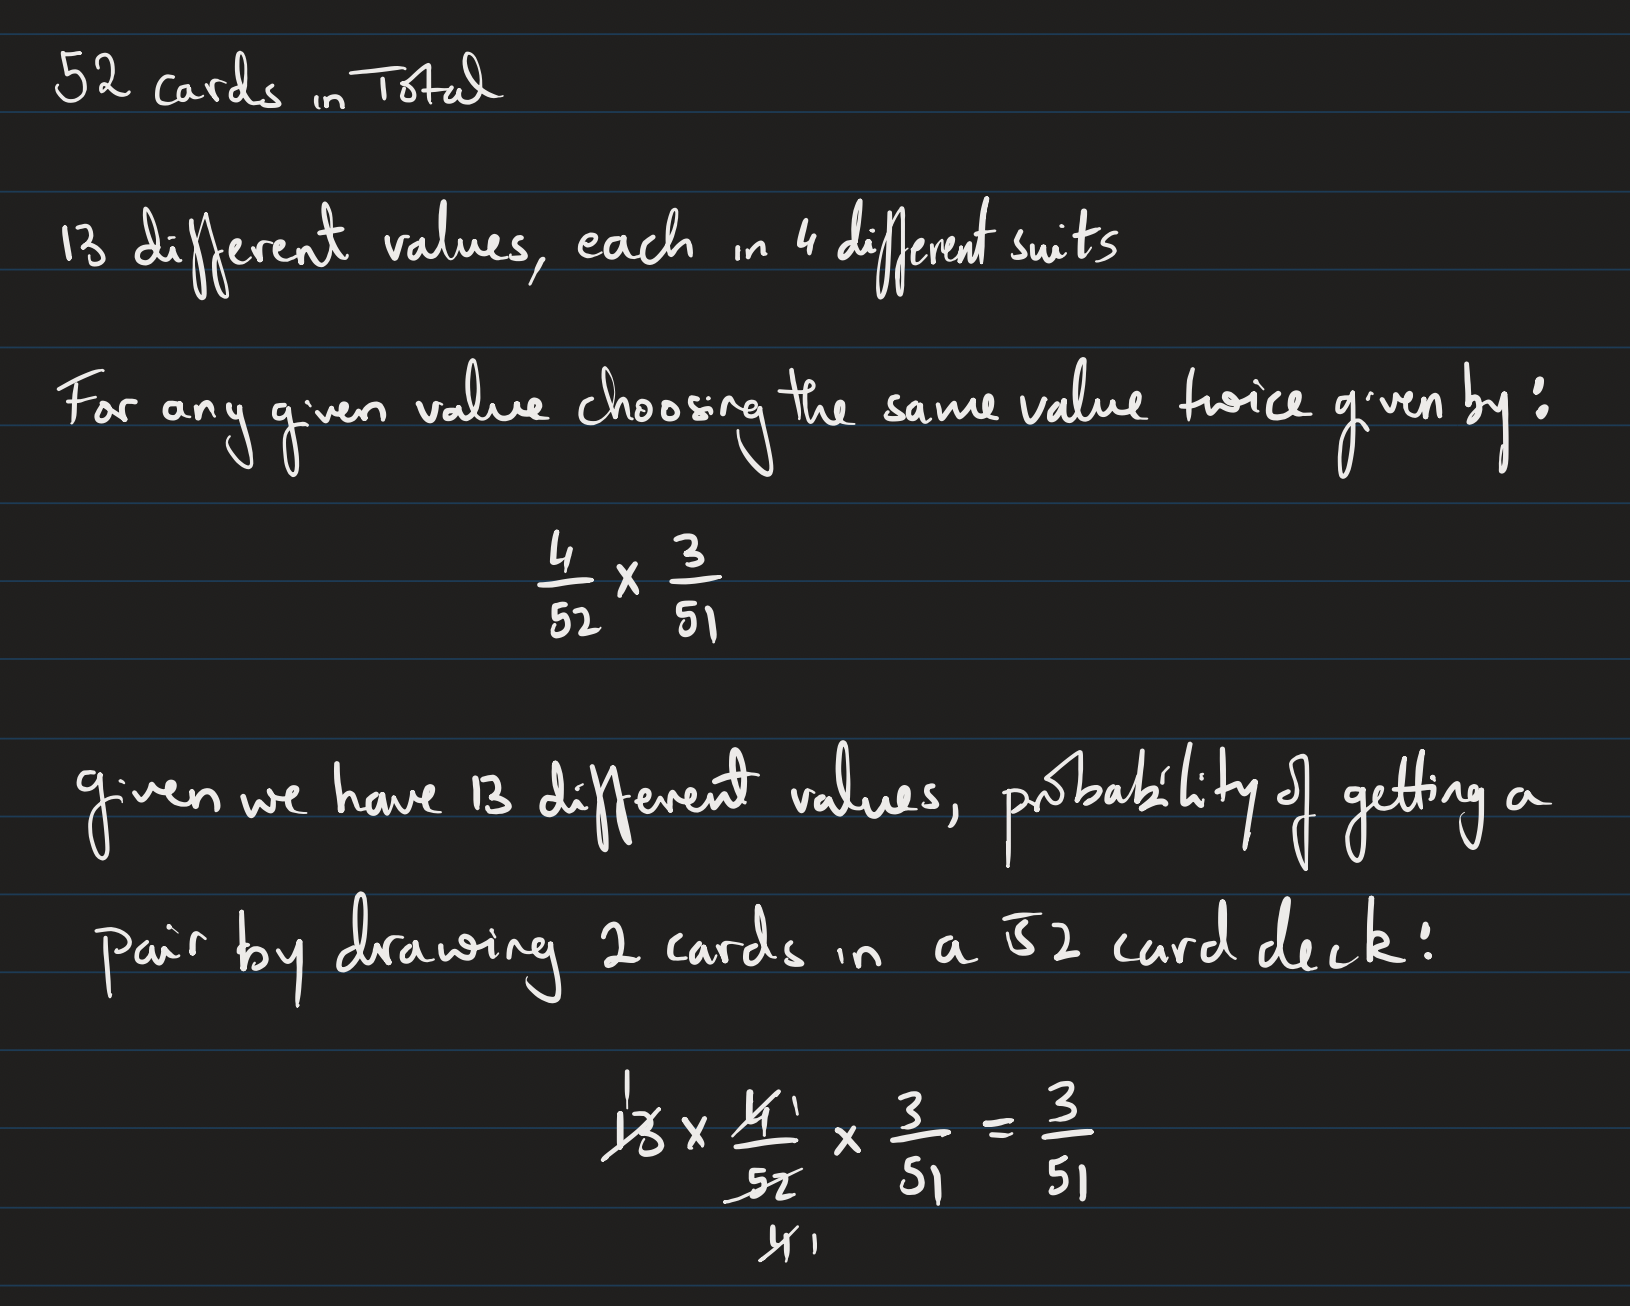 52 cards in Total
13 different values, each in 4 different suits
For any given value choosing the same value twice given by:
4/52 × 3/51
given we have 13 different values, probability of getting a
pair by drawing 2 cards in a 52 card deck:
1
13 × 4/52 1 × 3/51 = 3/51
4 1